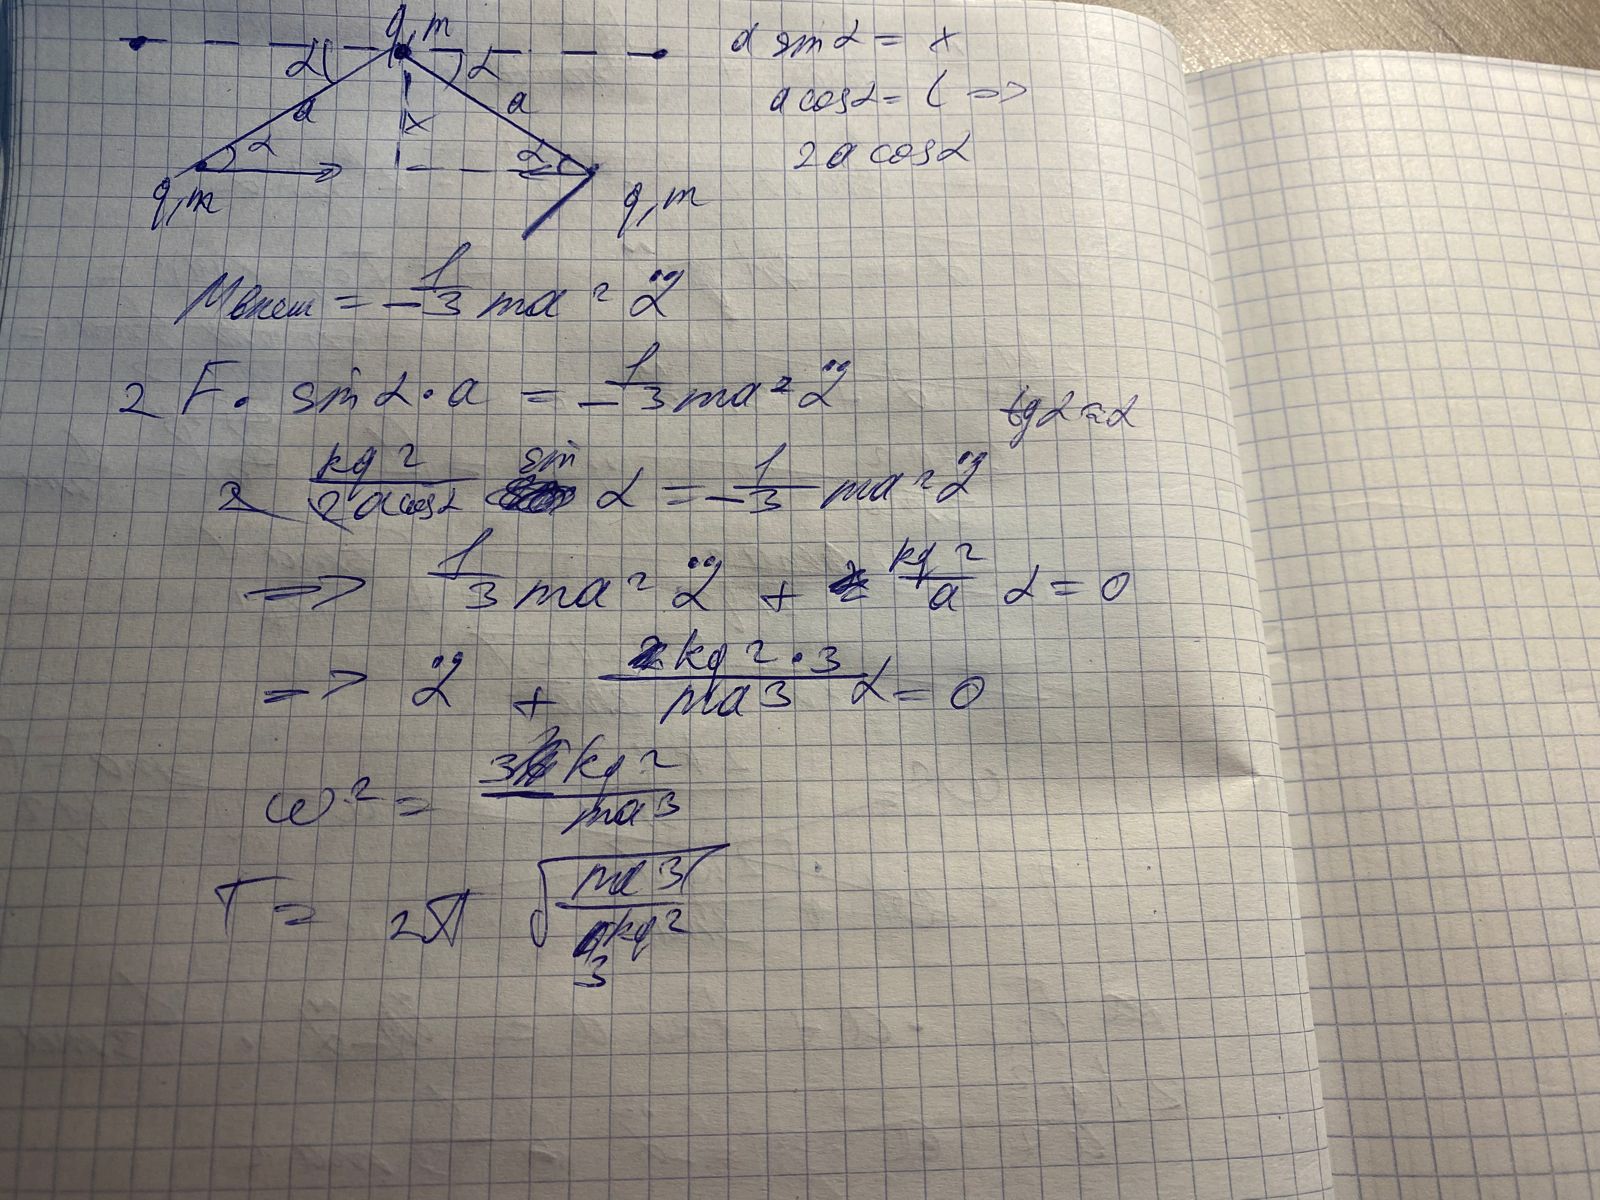 q,m
α α
a a
x
α α
q,m q,m
a sin α = x
a cos α = l =>
2a cos α
Mвнеш = -1/3 ma² α̈
2F · sin α · a = -1/3 ma² α̈
tg α ≈ α
2 kq²/2a cos α sin α = -1/3 ma² α̈
=> 1/3 ma² α̈ + kq²/a α = 0
=> α̈ + kq² · 3/ma3 α = 0
ω² = 3kq²/ma3
T = 2π √(ma3/3kq²)